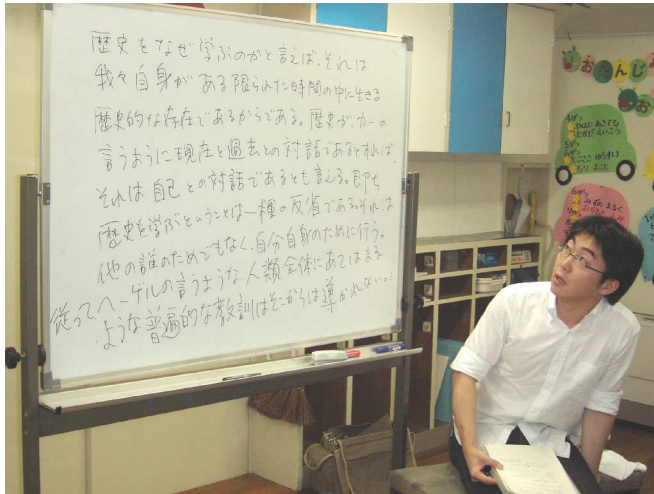 歴史をなぜ学ぶのかと言えば、それは
我々自身がある限られた時間の中に生きる
歴史的な存在であるからである。歴史が、カーの
言うように現在と過去との対話であるとすれば、
それは自己との対話であるとも言える。即ち
歴史を学ぶということは一種の反省である。それは
他の誰のためでもなく、自分自身のために行う。
従ってヘーゲルの言うような、人類全体にあてはまる
ような普遍的な教訓はそこからは導かれない。
おたんじょ
お
4がつ
5がつ
6がつ